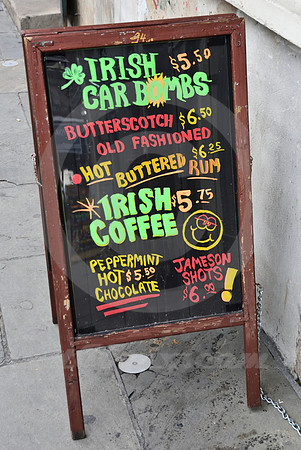 94
IRISH $5.50
CAR BOMBS
BUTTERSCOTCH $6.50
OLD FASHIONED
HOT BUTTERED $6.25 RUM
IRISH $5.75
COFFEE
PEPPERMINT
HOT $5.50
CHOCOLATE
JAMESON
SHOTS
$6.00
!